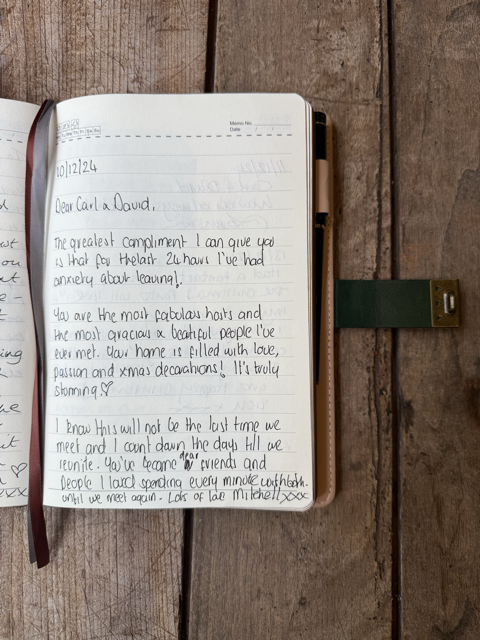 Memo No.
Date
10/12/24
Dear Carl & David,
The greatest compliment I can give you
is that for the last 24 hours I've had
anxiety about leaving!
You are the most fabulous hosts and
the most gracious & beatiful people I've
ever met. Your home is filled with love,
passion and xmas decorations! It's truly
stunning ♡
I know this will not be the last time we
meet and I count down the days till we
reunite. You've become dear friends and
people I loved spending every minute with both.
until we meet again. Lots of love Mitchell xxx